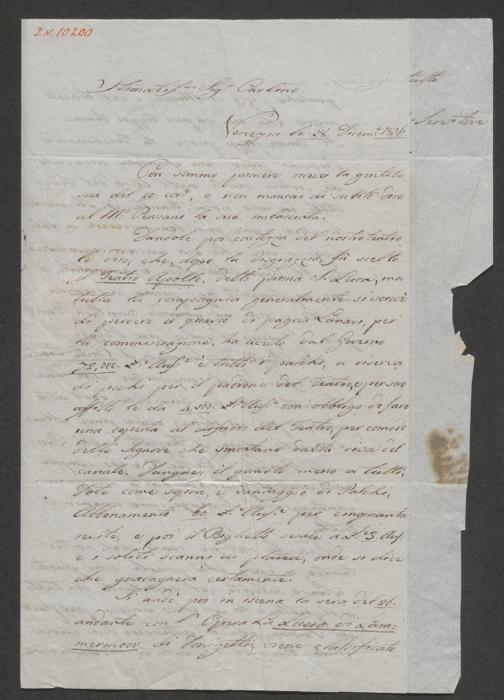 I.N. 10200
Stimatis.mo Sig.r Carlino
tutto
Servitore
Venezia li 28 Dicem. 1836
Con sommo piacere ricevo la gentile
sua del 20 cor.e, e non mancai di subito dare
al M.o Persiani la sua imbasciata.
Dandole poi contezza del nostro teatro
le dirò, che, dopo la disgrazia, fu scelto
il Teatro Apollo, detto prima S. Luca, ma
tutta la compagnia generalmente si
di perdere il quarto di paga. Lanari, per
la combinazione, ha avuto dal Governo
72,000 L. Aus.e e tutti i palchi, a riserva
di pochi per il padrone del Teatro, e per suo
affitto le dà 4,500 L. Aus.e con obbligo di fare
una coperta al di fuori del Teatro, per comodo
delle Signore che smontano dalla riva del
canale. Dunque, il quarto meno a tutti,
Dote come sopra, e vantaggio di Palchi,
Abbonamento L. Aus.e per cinquanta
recite, e poi il Biglietto serale a L. 3 Aus.
e i soliti scanni in platea, onde si dice
che guadagnerà certamente.
Si andò poi in iscena la sera del 26
andante con l'Opera La Lucia di Lam-
mermoor di Donizetti, viene